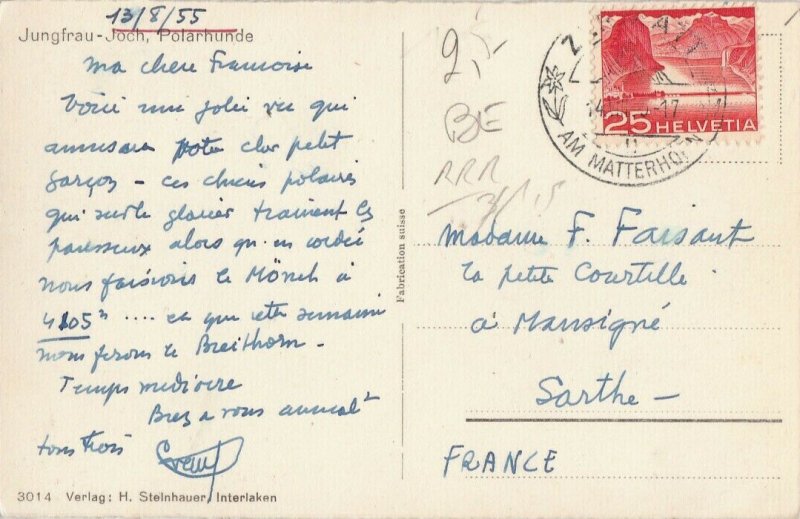 13/8/55
Jungfrau-Joch, Polarhunde
ma chere Francoise
Voici une jolie vue qui
amusera votre cher petit
garçon - ces chiens polaires
qui sur le glacier trainent les
paresseux alors qu'en cordée
nous faisions le Mönch à
4105m .... et que cette semaine
nous ferons le Breithorn -
Temps mediocre
à vous
tous trois
3014 Verlag: H. Steinhauer, Interlaken
Fabrication suisse
2,-
BE
RRR
25 HELVETIA
AM MATTERHORN
Madame F. Faisant
La petite Courtille
à Mansigné
Sarthe -
FRANCE